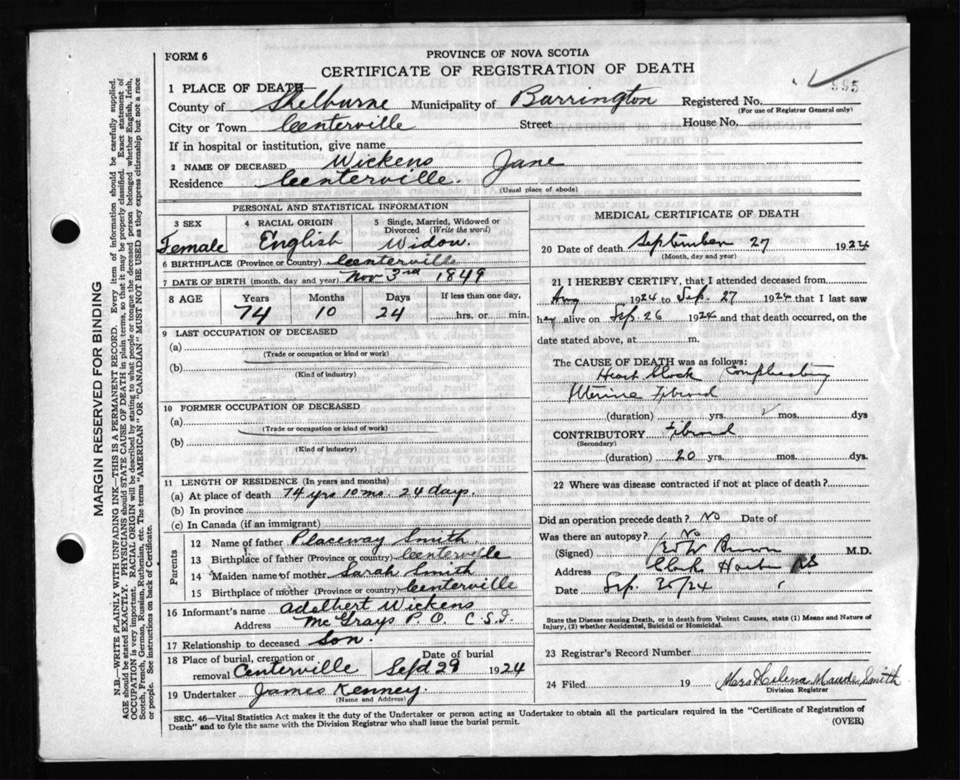 FORM 6
PROVINCE OF NOVA SCOTIA
CERTIFICATE OF REGISTRATION OF DEATH
995
1 PLACE OF DEATH—
County of Shelburne Municipality of Barrington Registered No.
(For use of Registrar General only)
City or Town Centerville Street House No.
If in hospital or institution, give name
2 NAME OF DECEASED Wickens Jane
Residence Centerville. (Usual place of abode)
PERSONAL AND STATISTICAL INFORMATION
3 SEX Female
4 RACIAL ORIGIN English
5 Single, Married, Widowed or Divorced (Write the word) Widow.
6 BIRTHPLACE (Province or Country) Centerville
7 DATE OF BIRTH (month, day and year) Nov 3rd 1849
8 AGE Years Months Days If less than one day,
74 10 24 hrs. or min.
9 LAST OCCUPATION OF DECEASED
(a)
(Trade or occupation or kind or work)
(b)
(Kind of industry)
10 FORMER OCCUPATION OF DECEASED
(a)
(Trade or occupation or kind or work)
(b)
(Kind of industry)
11 LENGTH OF RESIDENCE (In years and months)
(a) At place of death 74 yrs 10 mo. 24 days.
(b) In province
(c) In Canada (if an immigrant)
Parents
12 Name of father Placeway Smith
13 Birthplace of father (Province or country) Centerville
14 Maiden name of mother Sarah Smith
15 Birthplace of mother (Province or country) Centerville
16 Informant's name Adelbert Wickens
Address McGrays P.O. C.S.I
17 Relationship to deceased Son.
18 Place of burial, cremation or removal Centerville Date of burial Sept 29 1924
19 Undertaker James Kenney.
(Name and Address)
MEDICAL CERTIFICATE OF DEATH
20 Date of death September 27 1924
(Month, day and year)
21 I HEREBY CERTIFY, that I attended deceased from
Aug 1924 to Sep. 27 1924 that I last saw
her alive on Sep. 26 1924 and that death occurred, on the
date stated above, at m.
The CAUSE OF DEATH was as follows:
Heart Block Complicating
Uterine Fibroid
(duration) yrs. mos. dys
CONTRIBUTORY Fibroid
(Secondary)
(duration) 20 yrs. mos. dys.
22 Where was disease contracted if not at place of death?
Did an operation precede death? No Date of
Was there an autopsy? No
(Signed) Brown M.D.
Address Clarks Harbor NS
Date Sep. /24
State the Disease causing Death, or in death from Violent Causes, state (1) Means and Nature of
Injury, (2) whether Accidental, Suicidal or Homicidal.
23 Registrar's Record Number
24 Filed 19 Mrs Helena Maude Smith
Division Registrar
SEC. 46—Vital Statistics Act makes it the duty of the Undertaker or person acting as Undertaker to obtain all the particulars required in the "Certificate of Registration of
Death" and to fyle the same with the Division Registrar who shall issue the burial permit.
(OVER)
MARGIN RESERVED FOR BINDING
N.B.—WRITE PLAINLY WITH UNFADING INK—THIS IS A PERMANENT RECORD. Every item of information should be carefully supplied.
AGE should be stated EXACTLY. PHYSICIANS should STATE CAUSE OF DEATH in plain terms, so that it may be properly classified. Exact statement of
OCCUPATION is very important. RACIAL ORIGIN will be described by stating to what people or tongue the deceased person belonged whether English, Irish,
Scotch, French, German, Russian, Ruthenian, etc. The terms "AMERICAN" OR "CANADIAN" MUST NOT BE USED as they express citizenship but not a race
or people. See instructions on back of Certificate.